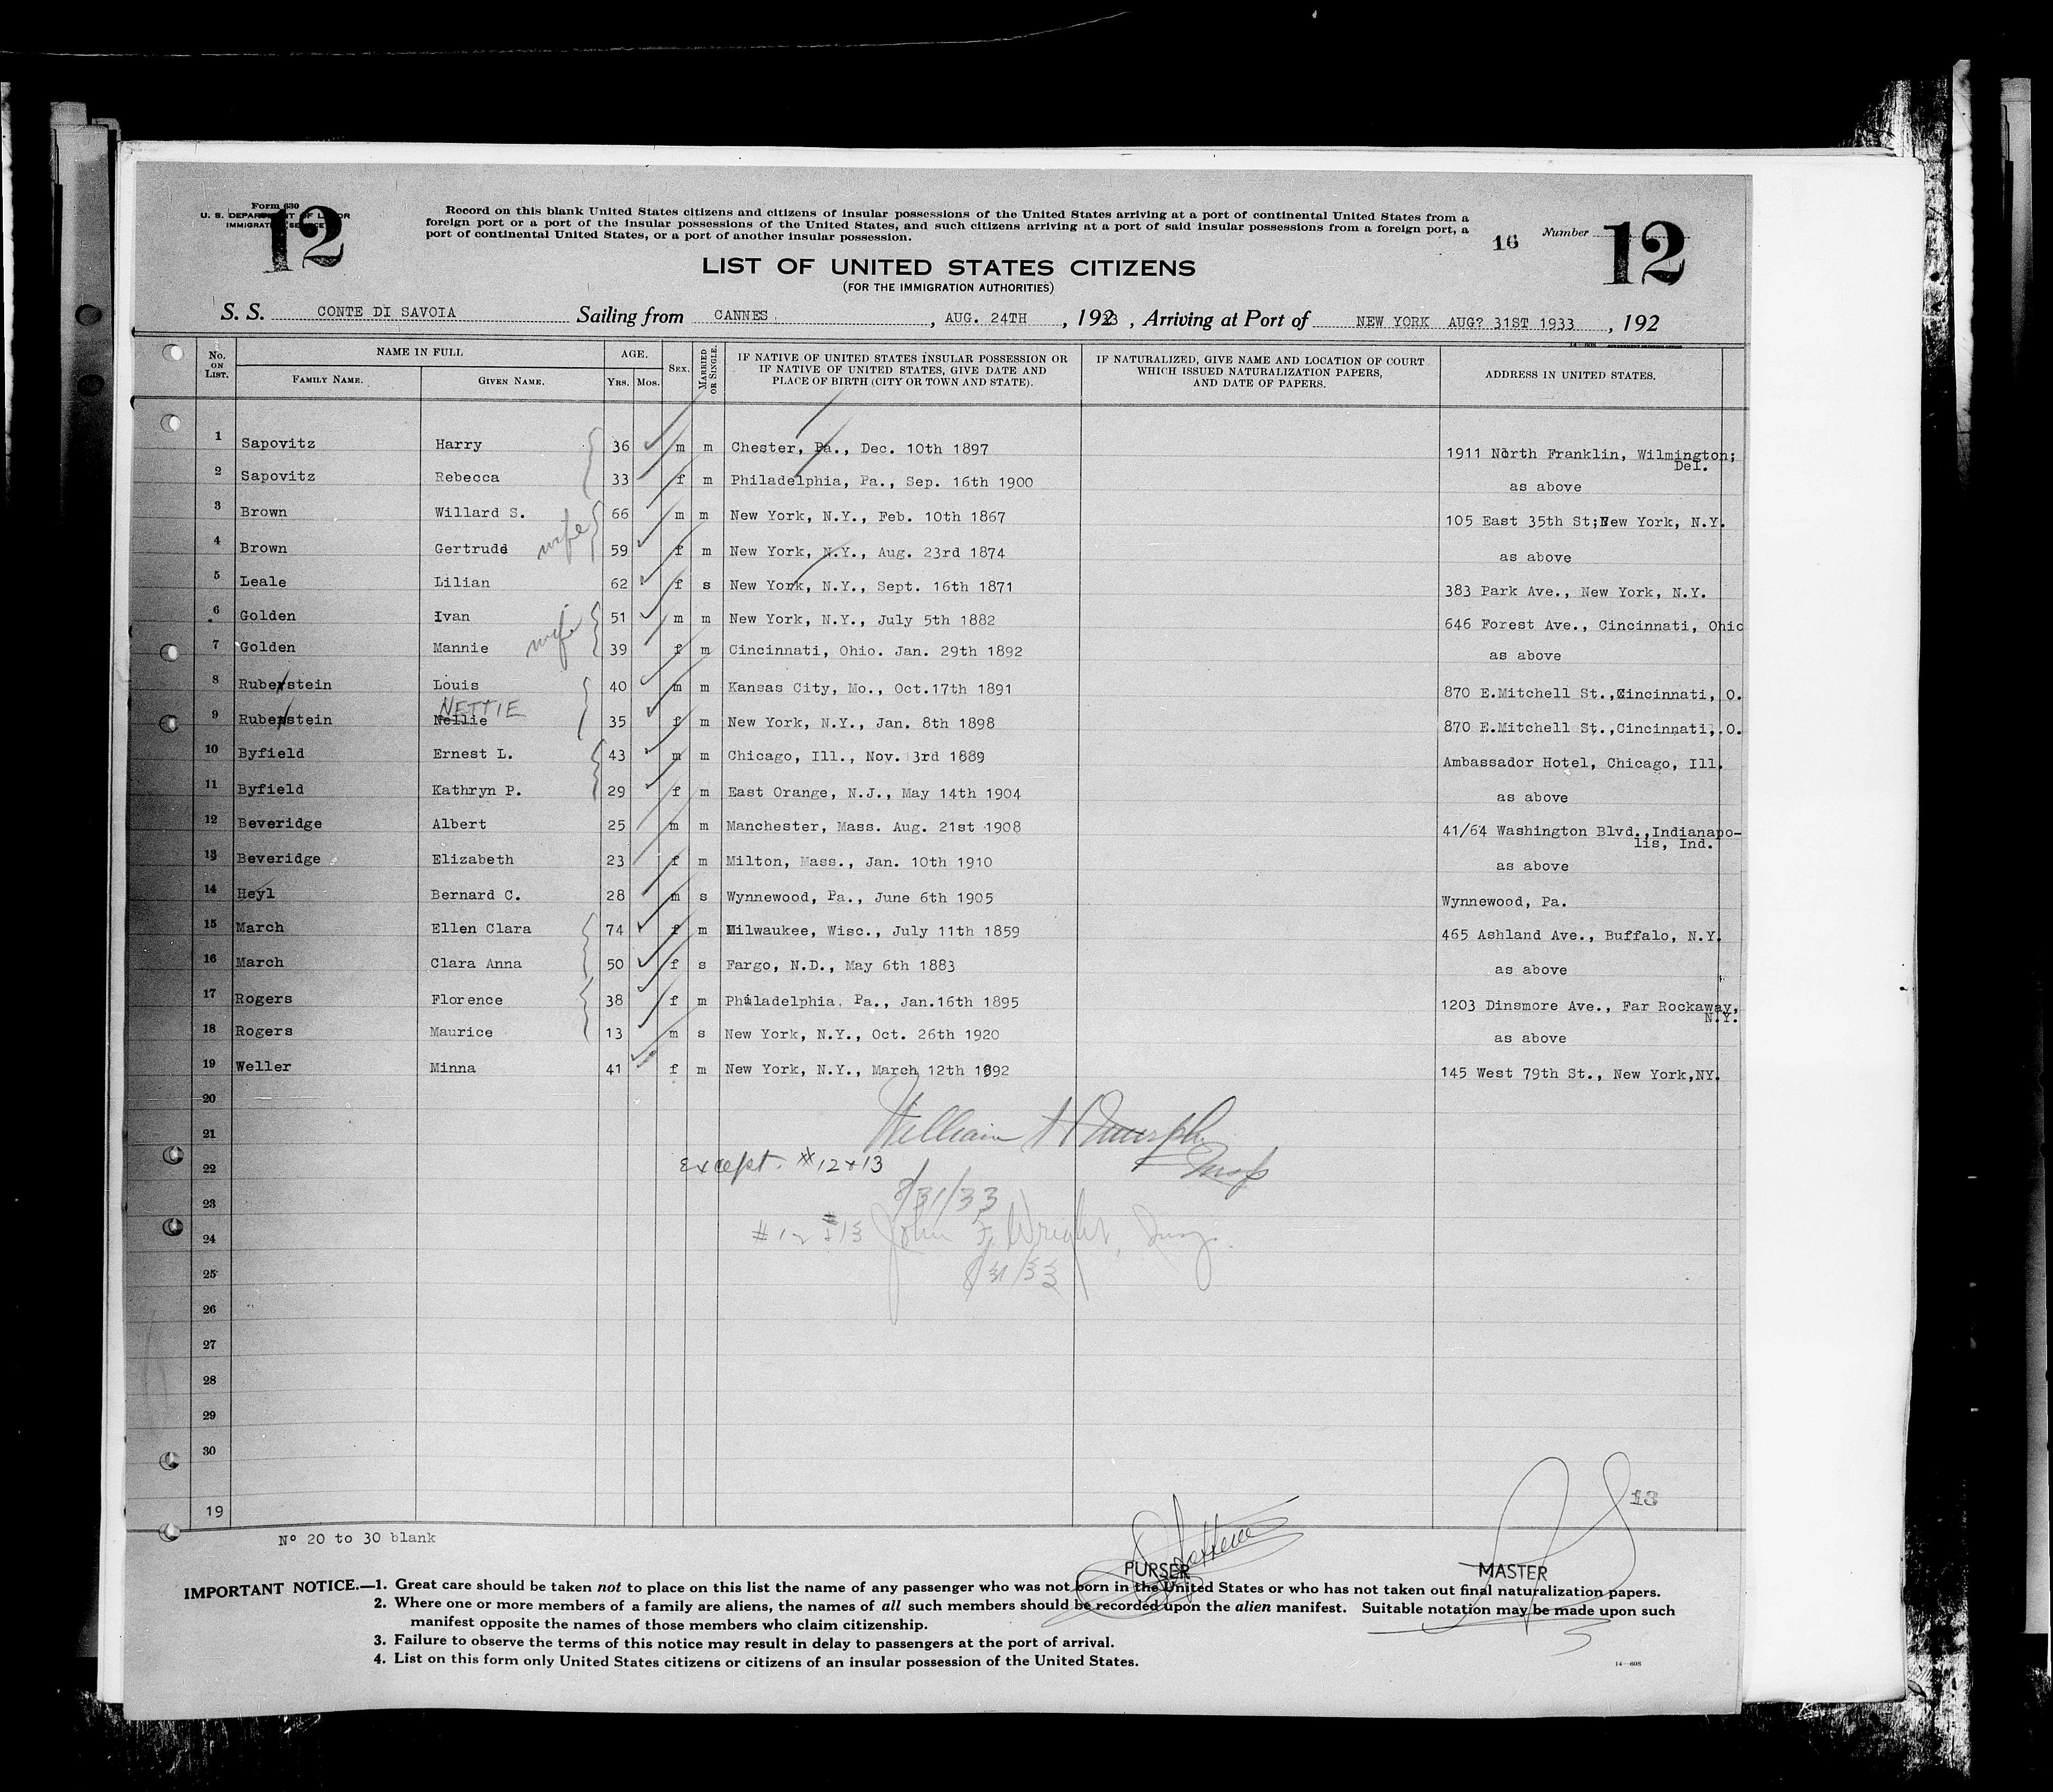 Form 630
U. S. DEPARTMENT OF LABOR
IMMIGRATION SERVICE
12
Record on this blank United States citizens and citizens of insular possessions of the United States arriving at a port of continental United States from a
foreign port or a port of the insular possessions of the United States, and such citizens arriving at a port of said insular possessions from a foreign port, a
port of continental United States, or a port of another insular possession.
16 Number 12
LIST OF UNITED STATES CITIZENS
(FOR THE IMMIGRATION AUTHORITIES)
S. S. CONTE DI SAVOIA Sailing from CANNES, AUG. 24TH, 1923, Arriving at Port of NEW YORK AUG? 31ST 1933, 192
No. ON LIST. NAME IN FULL FAMILY NAME. GIVEN NAME. AGE. YRS. MOS. SEX. MARRIED OR SINGLE. IF NATIVE OF UNITED STATES INSULAR POSSESSION OR IF NATIVE OF UNITED STATES, GIVE DATE AND PLACE OF BIRTH (CITY OR TOWN AND STATE). IF NATURALIZED, GIVE NAME AND LOCATION OF COURT WHICH ISSUED NATURALIZATION PAPERS, AND DATE OF PAPERS. ADDRESS IN UNITED STATES.
1 Sapovitz Harry 36 m m Chester, Pa., Dec. 10th 1897 1911 North Franklin, Wilmington; Del.
2 Sapovitz Rebecca 33 f m Philadelphia, Pa., Sep. 16th 1900 as above
3 Brown Willard S. 66 m m New York, N.Y., Feb. 10th 1867 105 East 35th St; New York, N.Y.
4 Brown Gertrude wife 59 f m New York, N.Y., Aug. 23rd 1874 as above
5 Leale Lilian 62 f s New York, N.Y., Sept. 16th 1871 383 Park Ave., New York, N.Y.
6 Golden Ivan 51 m m New York, N.Y., July 5th 1882 646 Forest Ave., Cincinnati, Ohio
7 Golden Mannie wife 39 f m Cincinnati, Ohio. Jan. 29th 1892 as above
8 Rubenstein Louis 40 m m Kansas City, Mo., Oct.17th 1891 870 E.Mitchell St.,Cincinnati, O.
NETTIE
9 Rubenstein Nellie 35 f m New York, N.Y., Jan. 8th 1898 870 E.Mitchell St.,Cincinnati,.O.
10 Byfield Ernest L. 43 m m Chicago, Ill., Nov. 3rd 1889 Ambassador Hotel, Chicago, Ill.
11 Byfield Kathryn P. 29 f m East Orange, N.J., May 14th 1904 as above
12 Beveridge Albert 25 m m Manchester, Mass. Aug. 21st 1908 41/64 Washington Blvd.,Indianapo-
lis, Ind.
13 Beveridge Elizabeth 23 f m Milton, Mass., Jan. 10th 1910 as above
14 Heyl Bernard C. 28 m s Wynnewood, Pa., June 6th 1905 Wynnewood, Pa.
15 March Ellen Clara 74 f m Milwaukee, Wisc., July 11th 1859 465 Ashland Ave., Buffalo, N.Y.
16 March Clara Anna 50 f s Fargo, N.D., May 6th 1883 as above
17 Rogers Florence 38 f m Philadelphia, Pa., Jan.16th 1895 1203 Dinsmore Ave., Far Rockaway,
N.Y.
18 Rogers Maurice 13 m s New York, N.Y., Oct. 26th 1920 as above
19 Weller Minna 41 f m New York, N.Y., March 12th 1892 145 West 79th St., New York,NY.
20
21 William
22 Except. #12 & 13 Insp
23 8/31/33
24 #12 & 13 John F. Wright, Insp.
25 8/31/33
26
27
28
29
30
19
18
Nº 20 to 30 blank
PURSER MASTER
IMPORTANT NOTICE.—1. Great care should be taken not to place on this list the name of any passenger who was not born in the United States or who has not taken out final naturalization papers.
2. Where one or more members of a family are aliens, the names of all such members should be recorded upon the alien manifest. Suitable notation may be made upon such
manifest opposite the names of those members who claim citizenship.
3. Failure to observe the terms of this notice may result in delay to passengers at the port of arrival.
4. List on this form only United States citizens or citizens of an insular possession of the United States.
14—608